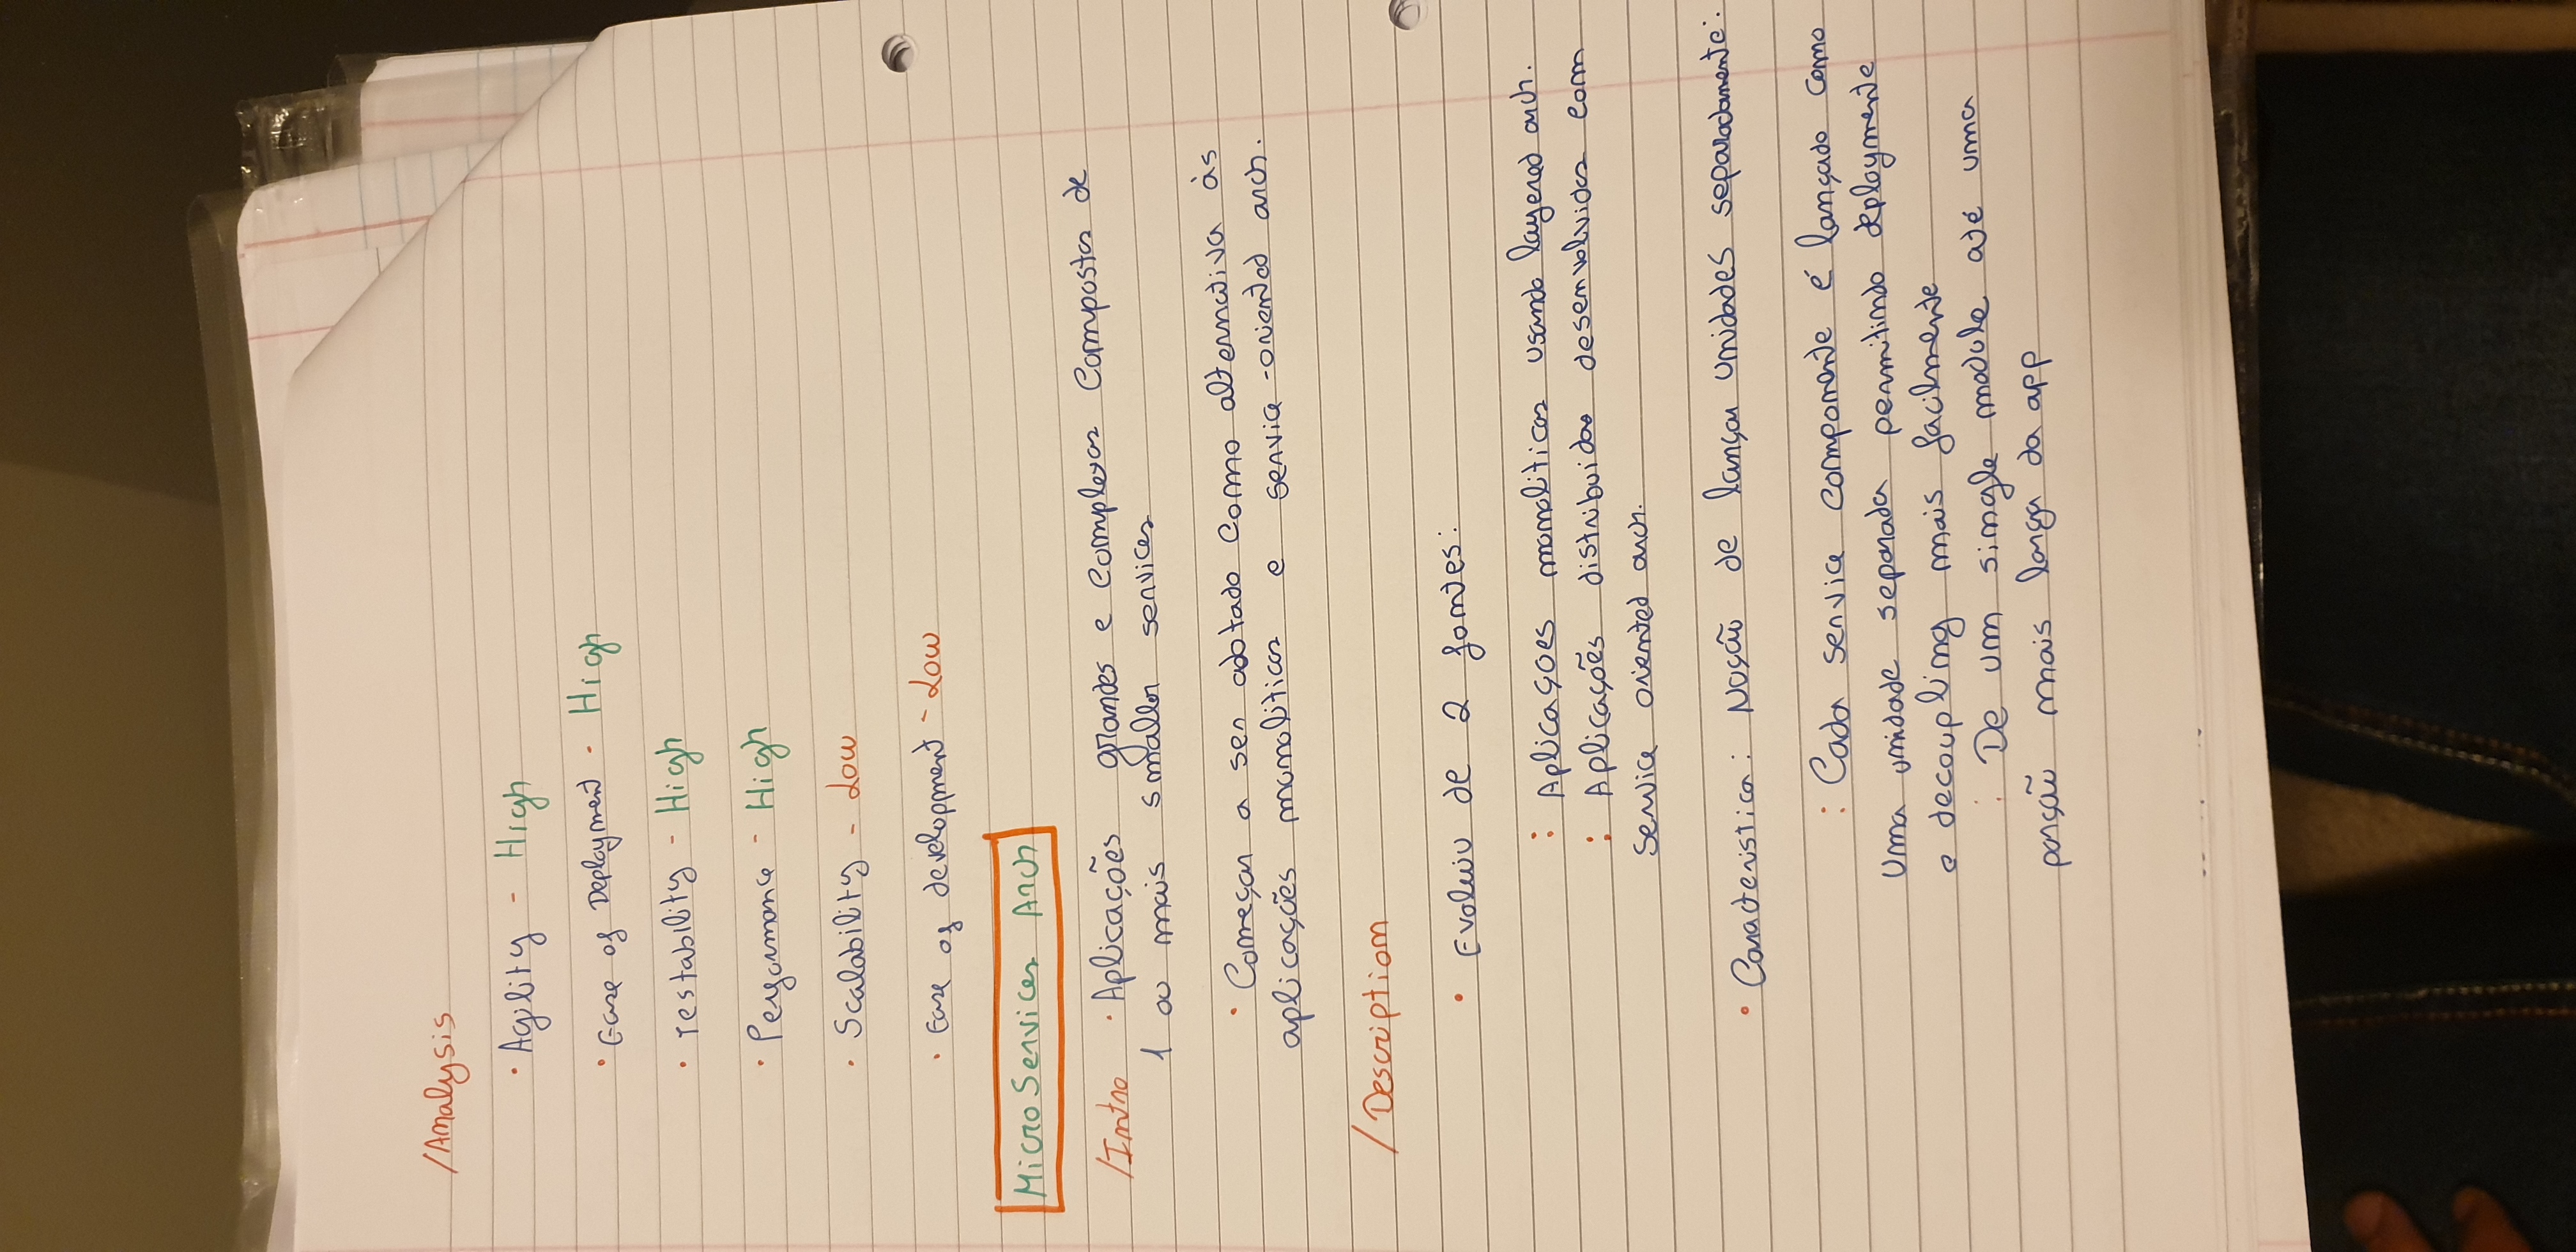 /Analysis
· Agility - High
· Ease of Deployment - High
· Testability - High
· Performance - High
· Scalability - Low
· Ease of development - Low
MicroServices Arch
/Intro · Aplicações grandes e complexas compostas de
1 ou mais smaller services
· Começar a ser adotado como alternativa às
aplicações monoliticas e service-oriented arch.
/Description
· Evoluiu de 2 fontes:
: Aplicaçoes monoliticas usando layered arch.
: Aplicações distribuidas desenvolvidas com
service oriented arch.
· Caracteristica: Noção de lançar unidades separadamente:
: Cada service componente é lançado como
uma unidade separada permitindo deploymente
e decoupling mais facilmente
: De um single module até uma
porção mais larga da app